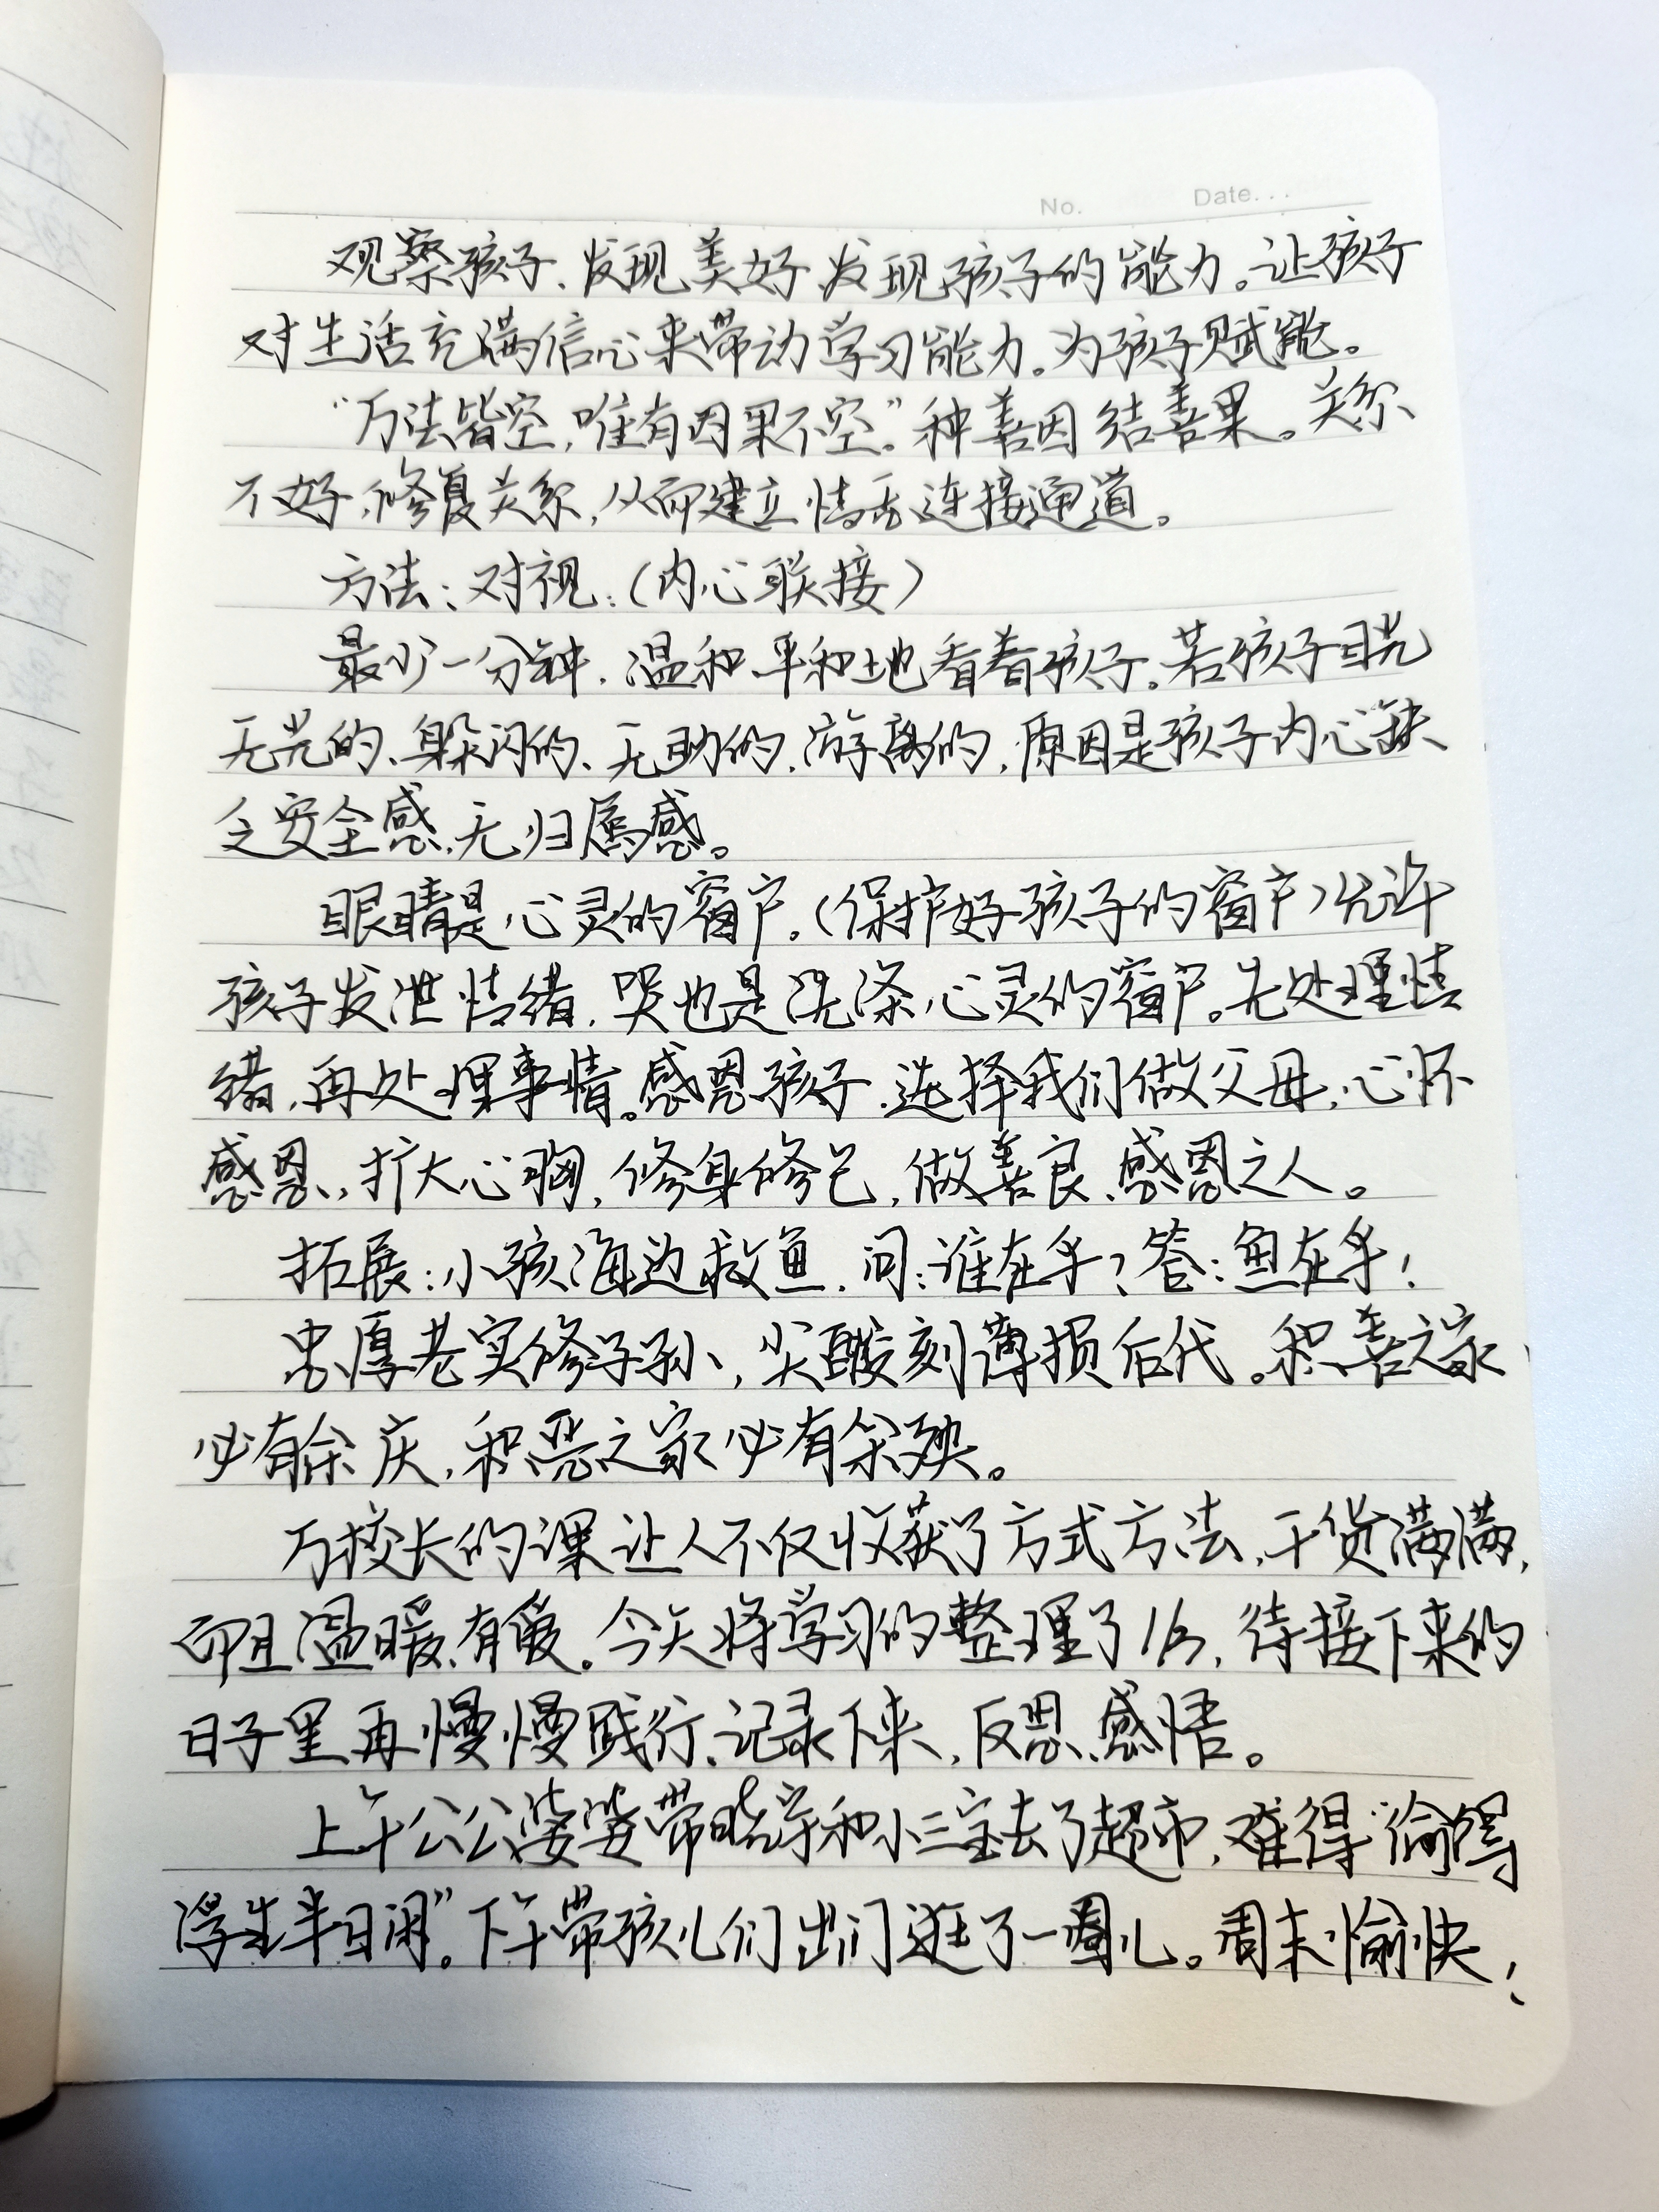 No.	Date...
观察孩子、发现美好、发现孩子的能力。让孩子
对生活充满信心来带动学习能力。为孩子赋能。
“万法皆空,唯有因果不空。”种善因结善果。关系
不好,修复关系,从而建立情感连接通道。
方法:对视:(内心联接)
最少一分钟,温和平和地看着孩子。若孩子目光
无光的、躲闪的、无助的、游离的,原因是孩子内心缺
乏安全感、无归属感。
眼睛是心灵的窗户。(保护好孩子的窗户)允许
孩子发泄情绪,哭也是洗涤心灵的窗户。先处理情
绪,再处理事情。感恩孩子,选择我们做父母,心怀
感恩,扩大心胸,修身修己,做善良、感恩之人。
拓展:小孩海边救鱼,问:谁在乎?答:鱼在乎!
忠厚老实修子孙,尖酸刻薄损后代。积善之家
必有余庆,积恶之家必有余殃。
万校长的课让人不仅收获了方式方法,干货满满,
而且温暖、有爱。今天将学习的整理了1/3,待接下来的
日子里再慢慢践行、记录下来,反思、感悟。
上午公公婆婆带晓宇和小三宝去了超市,难得“偷得
浮生半日闲”。下午带孩儿们出门逛了一圈儿。周末愉快!